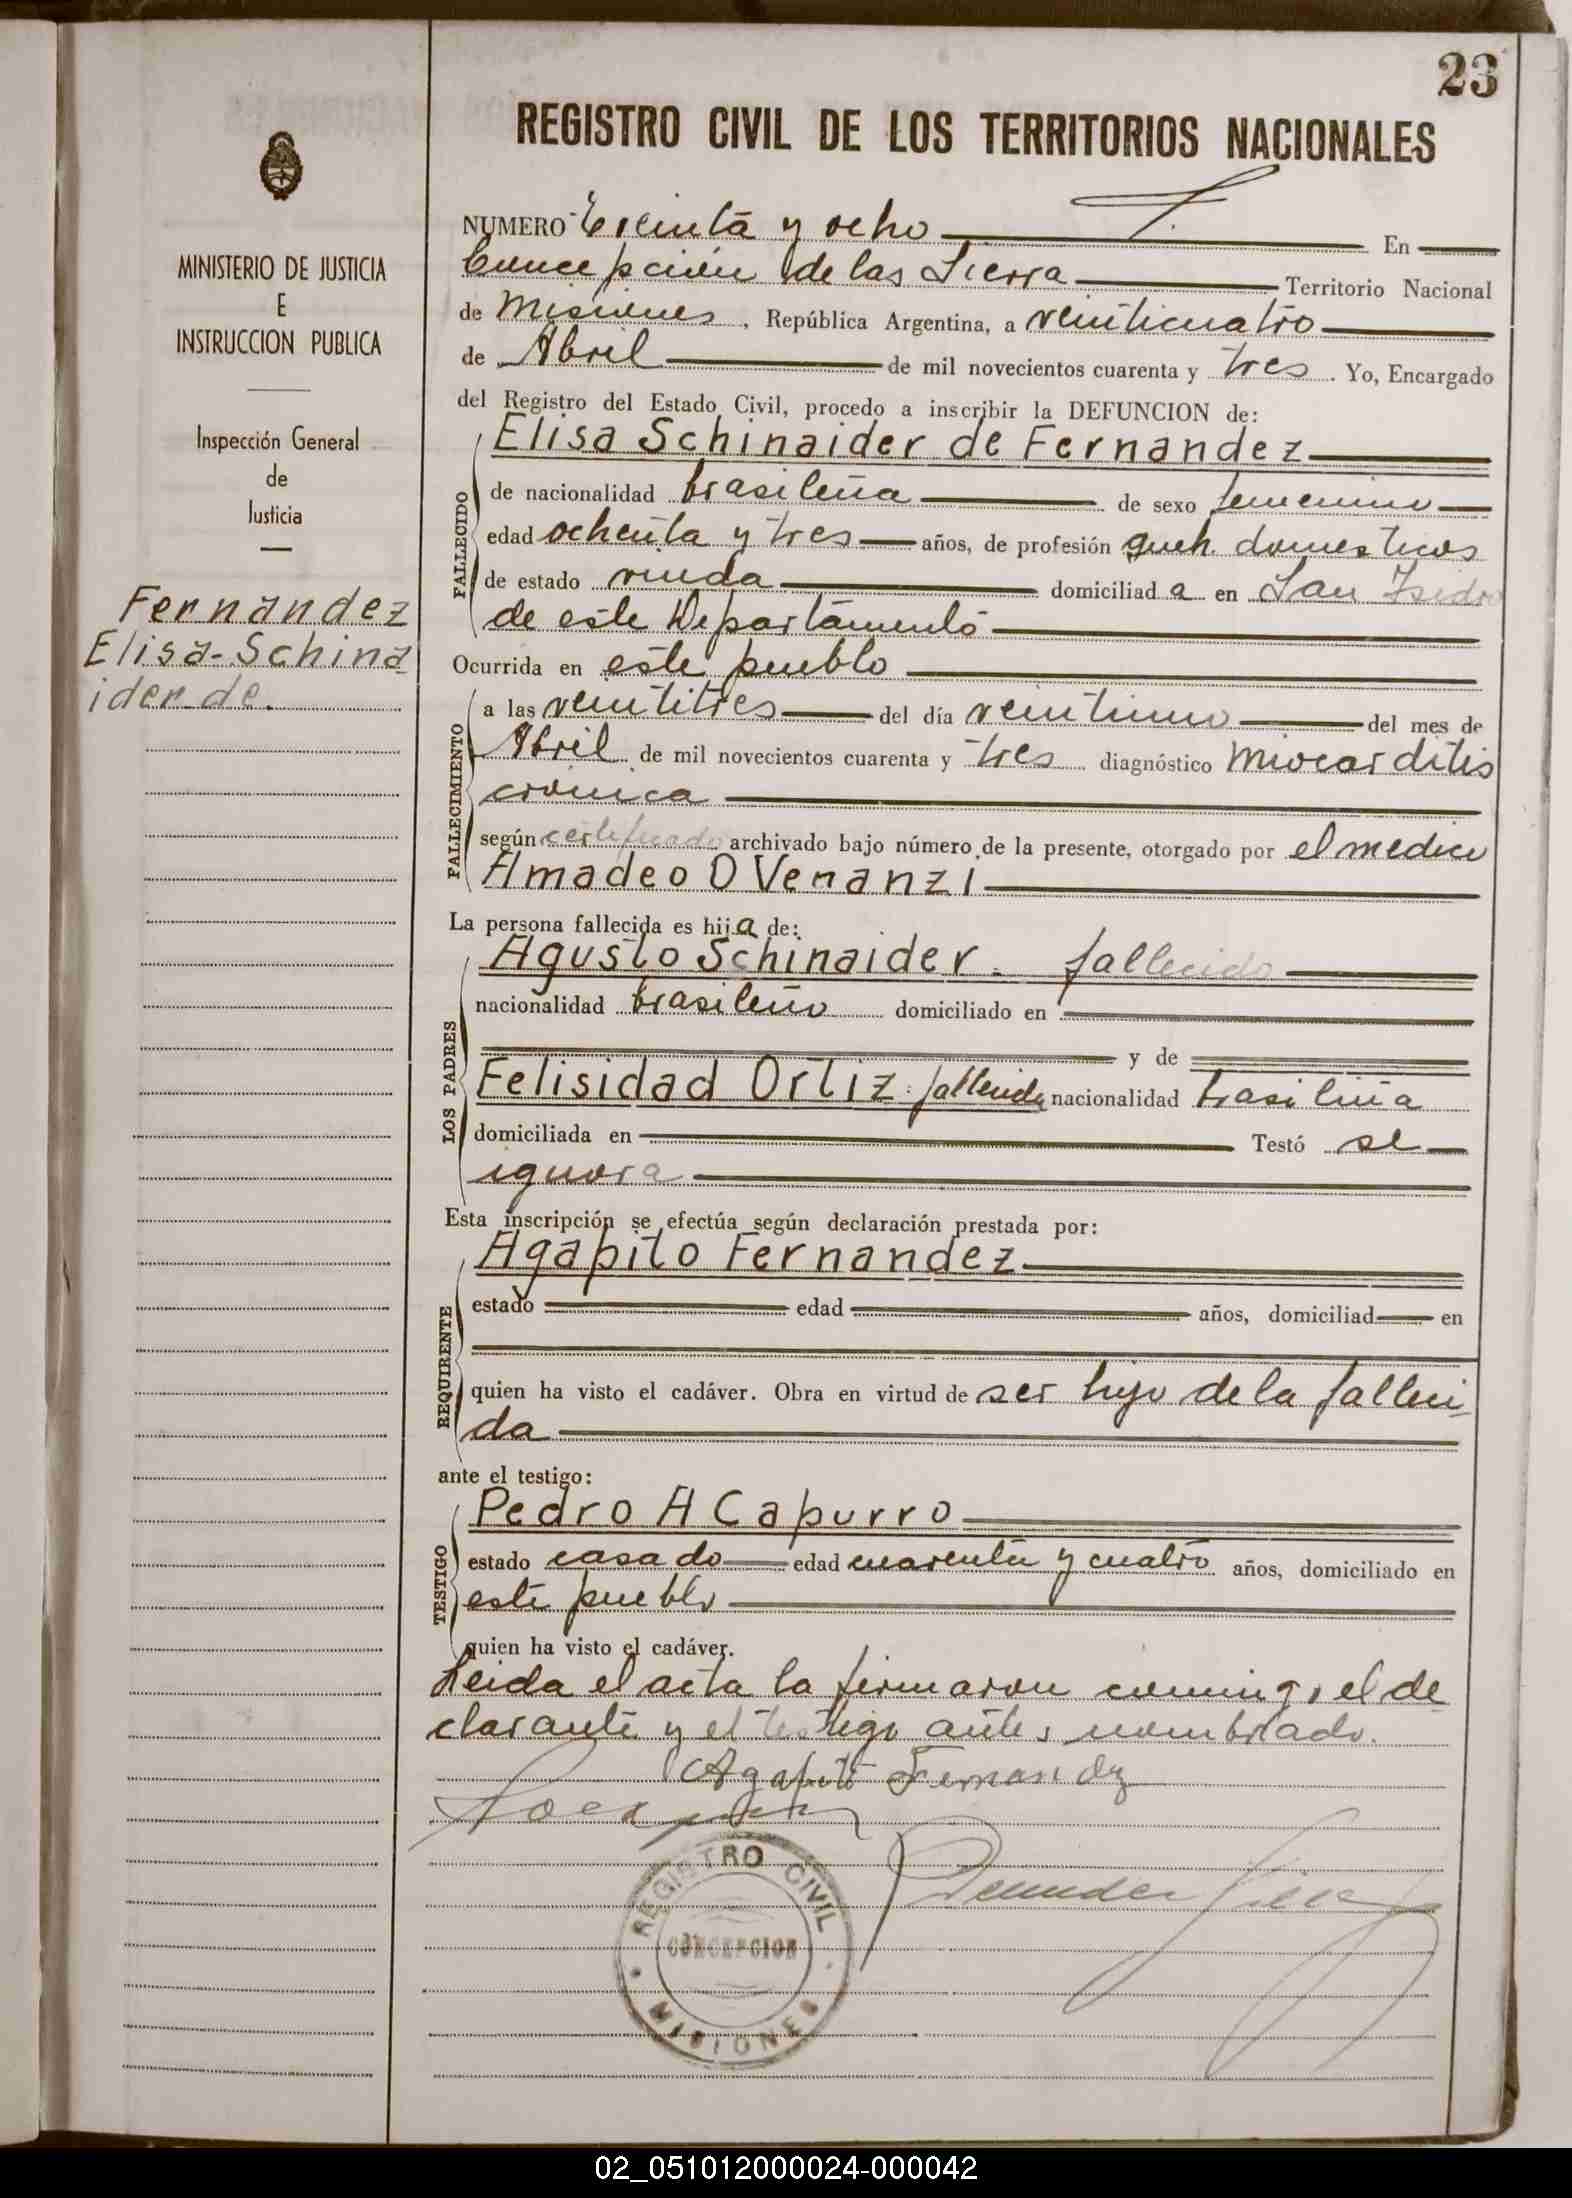 23
REGISTRO CIVIL DE LOS TERRITORIOS NACIONALES
MINISTERIO DE JUSTICIA
E
INSTRUCCION PUBLICA
Inspección General
de
Justicia
Fernandez
Elisa-Schina
ider de.
NUMERO Treinta y ocho En
Concepción de las Sierra Territorio Nacional
de Misiones, República Argentina, a veinticuatro
de Abril de mil novecientos cuarenta y tres. Yo, Encargado
del Registro del Estado Civil, procedo a inscribir la DEFUNCION de:
FALLECIDO
Elisa Schinaider de Fernandez
de nacionalidad brasileña de sexo femenino
edad ochenta y tres años, de profesión queh. domesticos
de estado viuda domiciliad a en San Isidro
de este Departamento
Ocurrida en este pueblo
FALLECIMIENTO
a las veintitres del día veintiuno del mes de
Abril de mil novecientos cuarenta y tres diagnóstico miocarditis
cronica
según certificado archivado bajo número de la presente, otorgado por el medico
Amadeo O Venanzi
La persona fallecida es hija de:
LOS PADRES
Agusto Schinaider. fallecido
nacionalidad brasileño domiciliado en
y de
Felisidad Ortiz. fallecida nacionalidad brasileña
domiciliada en Testó se
ignora
Esta inscripción se efectúa según declaración prestada por:
REQUIRENTE
Agapito Fernandez
estado edad años, domiciliad en
quien ha visto el cadáver. Obra en virtud de ser hijo de la falleci-
da
ante el testigo:
TESTIGO
Pedro A Capurro
estado casado edad cuarenta y cuatro años, domiciliado en
este pueblo
quien ha visto el cadáver.
Leida el acta la firmaron conmigo, el de
clarante y el testigo antes nombrado.
Agapito Fernandez
REGISTRO CIVIL
CONCEPCION
MISIONES
02_051012000024-000042